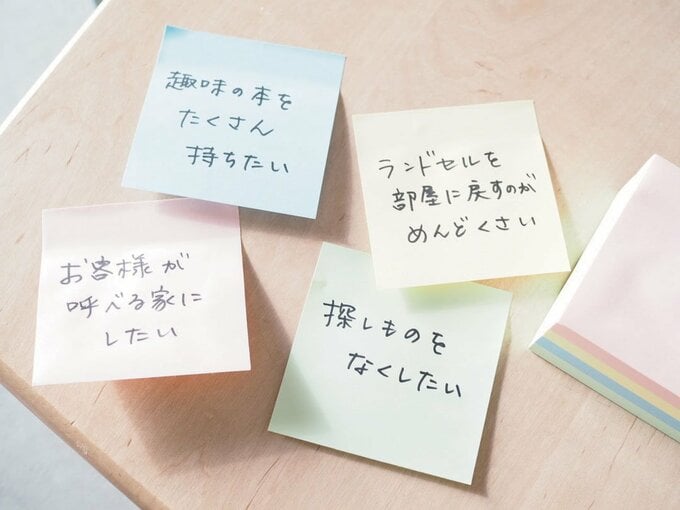 趣味の本を
たくさん
持ちたい
ランドセルを
部屋に戻すのが
めんどくさい
お客様が
呼べる家に
したい
探しものを
なくしたい